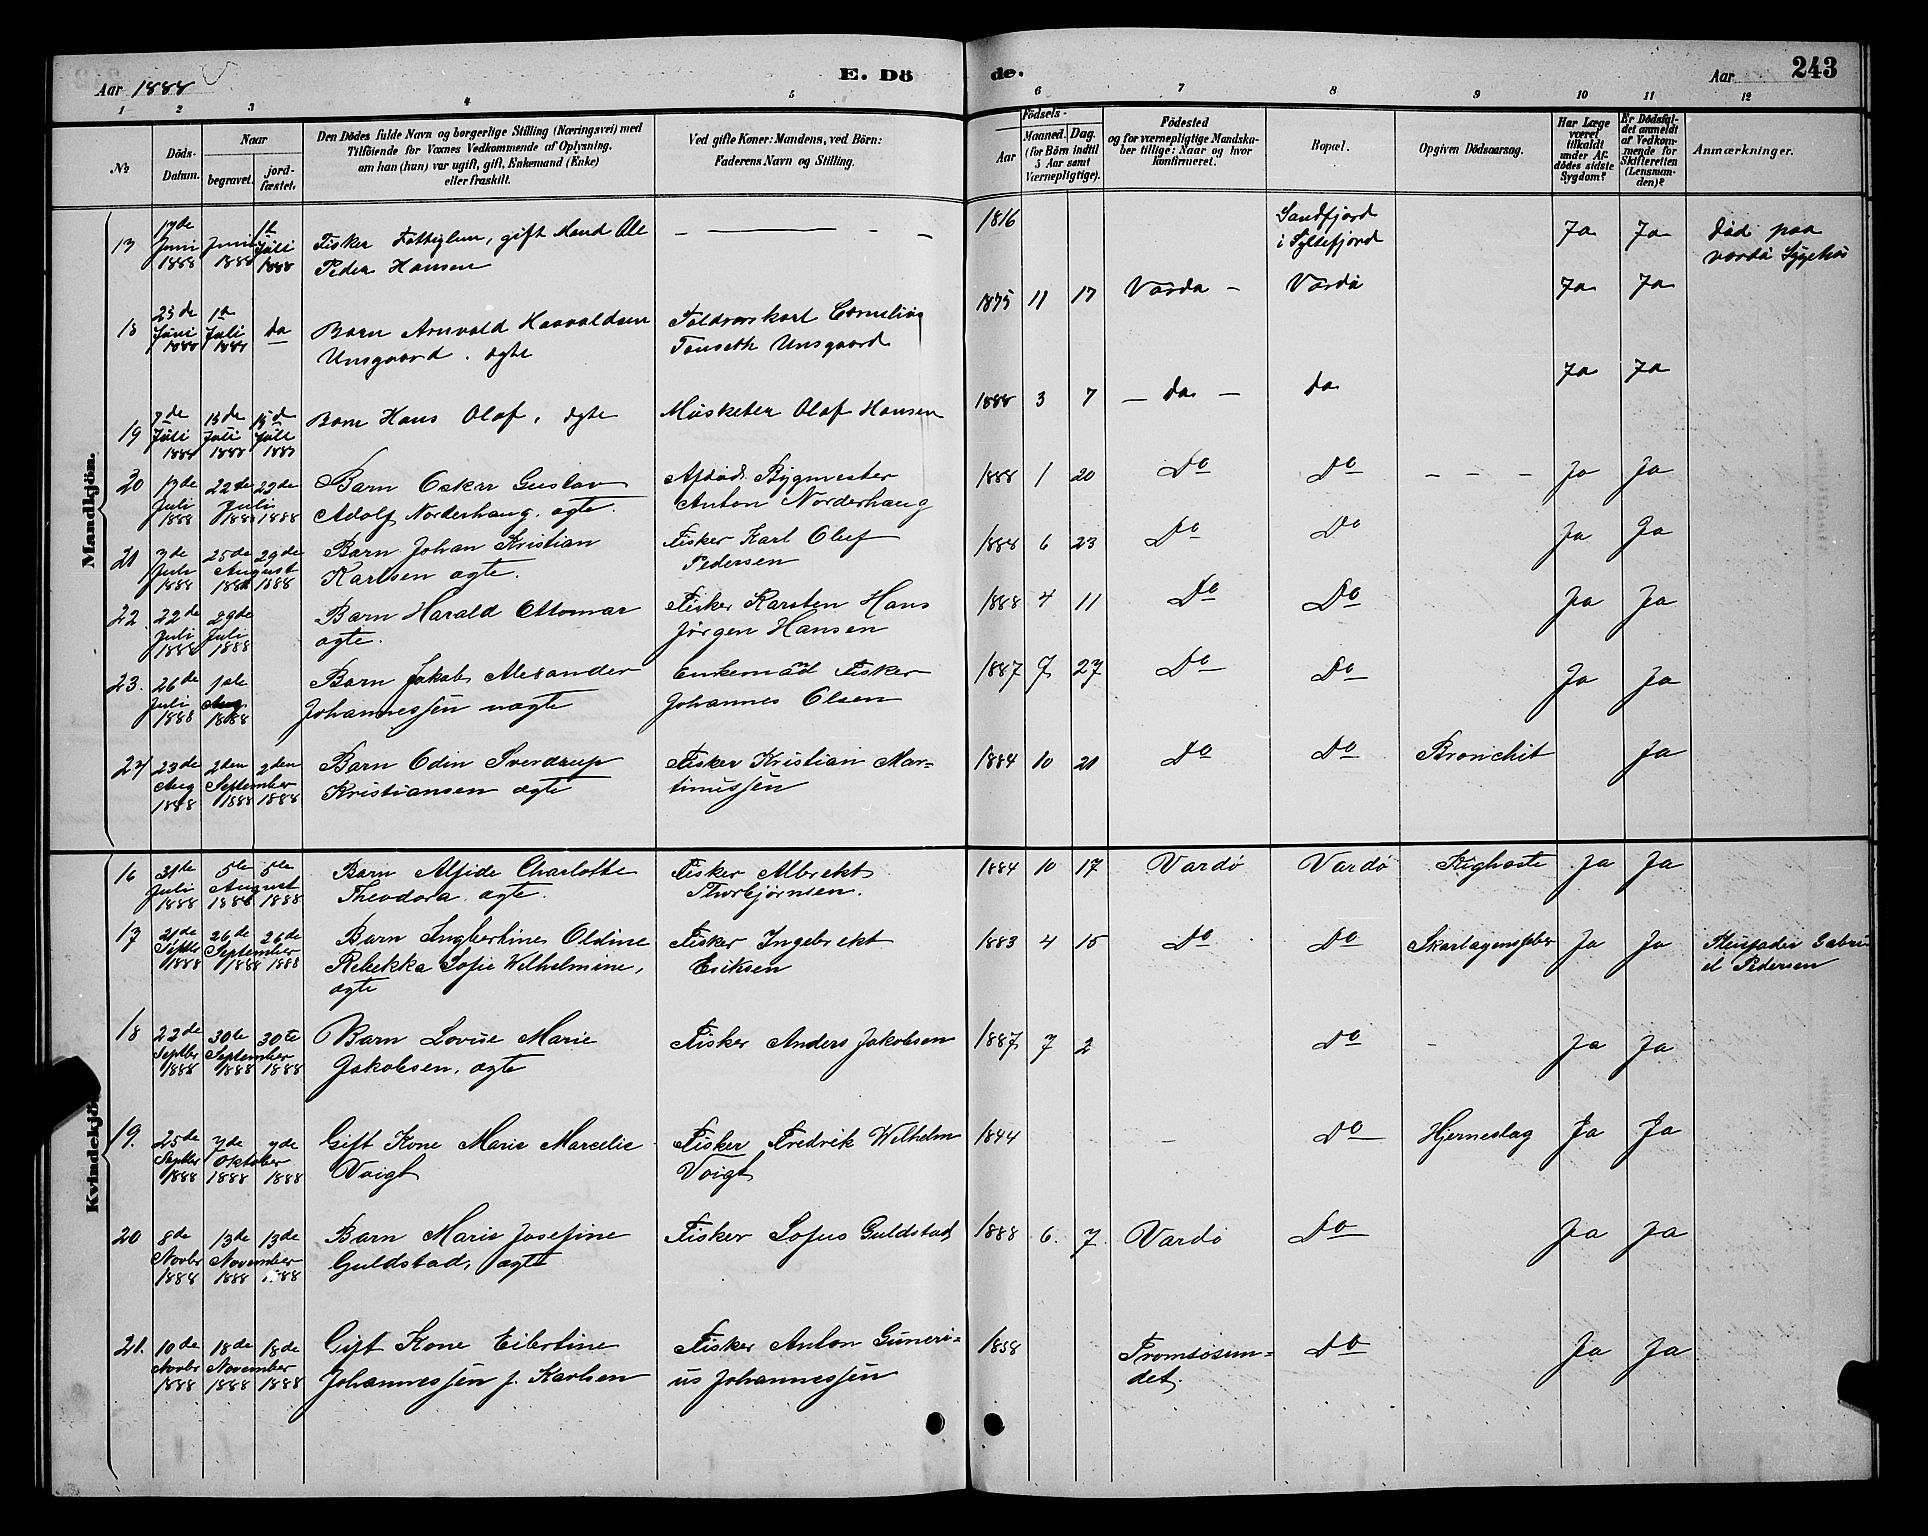 Aar 1888
E. Dö
de.
Aar
243
1 2 3 4 5 6 7 8 9 10 11 12
No
Döds-Datum.
Naar
begravet.
jord-fæstet.
Den Dödes fulde Navn og borgerlige Stilling (Næringsvei) med
Tilföiende for Voxnes Vedkommende af Oplysning,
om han (hun) var ugift, gift, Enkemand (Enke)
eller fraskilt.
Ved gifte Koner: Mandens, ved Börn:
Faderens Navn og Stilling.
Födsels-
Aar
Maaned. Dag.
(for Börn indtil
5 Aar samt
Værnepligtige).
Födested
og for værnepligtige Mandska-
ber tillige: Naar og hvor
konfirmeret.
Bopæl.
Opgiven Dödsaarsag.
Har Læge
været
tilkaldt
under Af-
dödes sidste
Sygdom?
Er Dödsfal-
det anmeldt
af Vedkom-
mende for
Skifteretten
(Lensman-
den)?
Anmærkninger.
Mandkjön.
17 17de Juni 1888 Juni 1888 1te Juli 1888 Fisker Fattiglem, gift Mand Ole 1816 Sandfjord Ja Ja Död paa
Peder Hansen i Syltefjord Vardö Sygehus
18 23de Juni 1888 1te Juli 1888 do Barn Arnvald Haavaldsen Toldvæskarl Cornelius 1875 11 17 Vardö Vardö Ja Ja
Unsgaard. ægte Tonseth Unsgaard
19 7de Juli 1888 15de Juli 1888 15de Juli 1888 Barn Hans Olaf, ægte Musketer Olaf Hansen 1888 3 7 do do Ja Ja
20 17de Juli 1888 22de 22de Juli 1888 1888 Barn Oskar Gustav Afdöd Bygmester 1888 1 20 Do Do Ja Ja
Adolf Norderhaug. ægte Anton Norderhaug
21 3de Juli 1888 25de 29de August 1888 1888 Barn Johan Kristian Fisker Karl Oluf 1884 6 23 Do Do Ja Ja
Karlsen ægte. Pedersen
22. 22de Juli 1888 29de Juli 1888 Barn Harald Ottomar Fisker Karsten Hans 1888 4 11 Do Do Ja Ja
ægte. Jørgen Hansen
23. 26de Juli 1888 1ste Aug 1888 Barn Jakob Alexander Enkemad Fisker 1887 7 27 Do Do Ja Ja
Johannessen uægte Johannes Olsen
24 23de Aug 1888 2den 2den September 1888 1888 Barn Odin Sverdrup Fisker Kristian Mar= 1884 10 21 Do Do Bronchit Ja
Kristiansen ægte tinussen
Kvindekjön.
16 31te Juli 1888 5te 5te August 1888 1888 Barn Alfide Charlotte Fisker Albrekt 1884 10 17 Vardö Vardö Kighoste Ja Ja
Theodora. ægte. Thorbjørnsen.
17 21de Septbr 1888 26de 26de September 1888 1888 Barn Ingbertine Oldine Fisker Ingebrekt 1883 4 15 Do Do Skarlagensfeber Ja Ja Pleiefader Gabri-
Rebekka Sofie Wilhelmine, Eriksen el Pedersen
ægte
18 22de Septbr 1888 30te 30te September 1888 1888 Barn Lovise Marie Fisker Anders Jakobsen 1887 7 2 Do Ja Ja
Jakobsen. ægte
19. 25de Septbr 1888 7de 7de Oktober 1888 1888 Gift Kone Marie Marcelie Fisker Fredrik Wilhelm 1844 Do Hjerneslag Ja Ja
Voigt Voigt
20 8de Novbr 1888 13de 13de November 1888 1888 Barn Marie Josefine Fisker Sofus Guldstad 1888 6. 7. Vardö Do Ja Ja
Guldstad, ægte
21. 10de Novbr 1888 18de 18de November 1888 1888 Gift Kone Eilertine Fisker Anton Guneri= 1858 Tromsösun= Do Ja Ja
Johannessen f. Karlsen us Johannessen det.